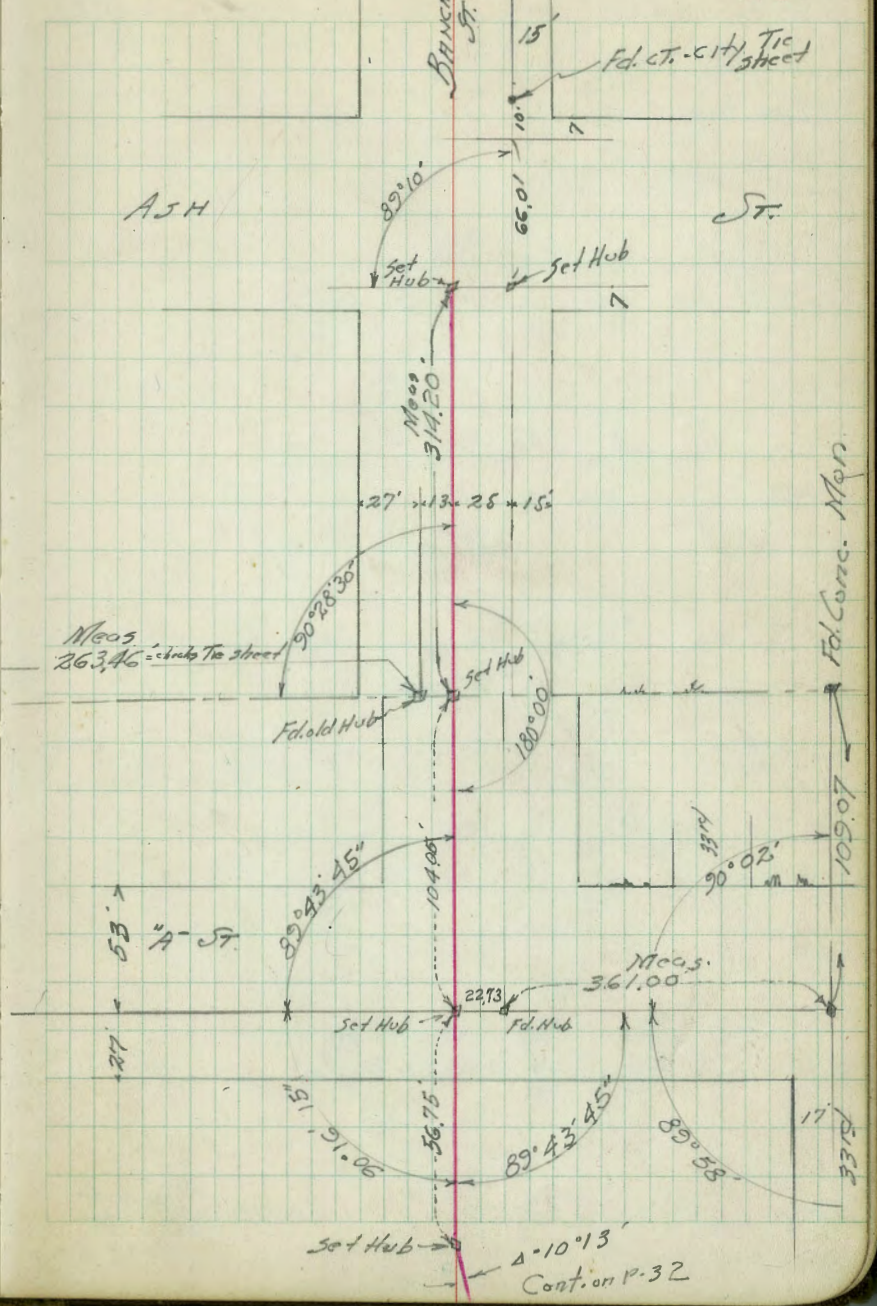 BANCR
ST.
15'
Fd. CT. - City Tie
sheet
10'
7
89°10'
66.01
ASH
ST.
Set
Hub
Set Hub
7
Meas
314.20'
27' 13 25 15'
Fd. Conc. Mon
90°28'30"
Meas
263.46' = checks Tie sheet
Set Hub
Fd. old Hub
180°00'
109.07
33rd
90°02'
89°43'45"
104.06'
53'
"A" ST.
Meas.
361.00
22.73
Set Hub
Fd. Hub
27'
56.75'
90°16'15"
89°43'45"
89°58'
17'
33rd
Set Hub
Δ=10°13'
Cont. on P-32